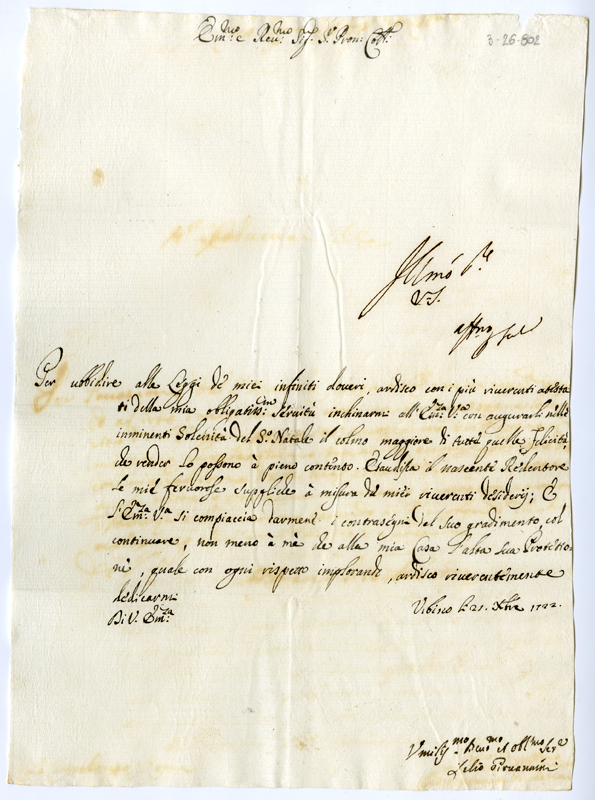 Em.mo e Reu.mo Sig.r P.ron Coll.mo
3-26-802
Illmo
V.S.
affmo
Per ubbidire alle Leggi de miei infiniti doveri, ardisco con i più riverenti attesta
ti della mia obligatiss.ma servitù inchinarmi all'Em.za V.a con augurarle nelle
imminenti Solennità del S.o Natale il colmo maggiore di tutte quelle felicità,
che render lo possono à pieno contento. Esaudisca il nascente Redentore
le mie fervorose suppliche à misura de miei riverenti desiderij; E
l'Em.za V.a si compiaccia darmene i contrasegni del suo gradimento, col
continuare, non meno à mè che alla mia Casa l'alta sua Protettio
ne, quale con ogni rispetto implorando, ardisco riverentemente
dedicarmi
Di V. Em.za
Vrbino li 21. Xbre 1722.
Vmiliss.mo Deuo.mo et obl.mo Ser.e
Lelio